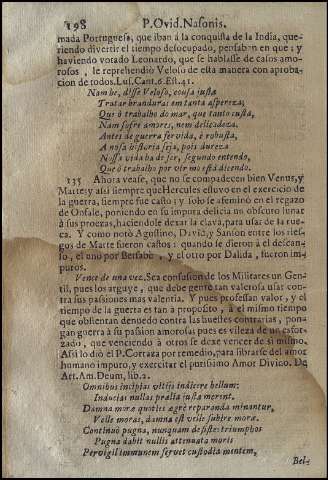 198 P. Ovid. Nasonis.
mada Portuguesa, que iban à la conquista de la India, que-
riendo divertir el tiempo desocupado, pensaban en que; y
haviendo votado Leonardo, que se hablasse de casos amo-
rosos, le reprehendiò Veloso de esta manera con aproba-
cion de todos. Lus. Cant. 6. Est. 41.
Nam he, disse Veloso, cousa justa
Tratar branduras em tanta aspereza;
Que ò trabalho do mar, que tanto custa,
Nam sofre amores, nem delicadeza.
Antes de guerra fervida, è robusta,
A nosa historia seja, pois dureza
Nossa vida ha de ser, segundo entendo,
Que ò trabalho por vir mo està dicendo.
135 Ahora vease, que no se compadecen bien Venus, y
Marte: y assi siempre que Hercules estuvo en el exercicio de
la guerra, siempre fue casto; y solo se afeminò en el regazo
de Onfale, poniendo en su impura delicia un obscuro lunar
à sus proezas, haciendole dexar la clava, para usar de la rue-
ca. Y como notò Agustino, David, y Sanson entre los ries-
gos de Marte fueron castos: quando se dieron à el descan-
so, el uno por Bersabè, y el otro por Dalida, fueron im-
puros.
Vence de una vez. Sea confusion de los Militares un Gen-
til, pues los arguye, que debe gente tan valerosa usar con-
tra sus passiones mas valentia. Y pues professan valor, y el
tiempo de la guerra es tan à proposito, à el mismo tiempo
que obstentan denuedo contra las huestes contrarias, pon-
gan guerra à su pasion amorosa; pues es vileza de un esfor-
zado, que venciendo à otros se dexe vencer de si mismo.
Assi lo diò el P. Cortaza por remedio, para librarse del amor
humano impuro, y exercitar el purisimo Amor Divino. De
Art. Am. Deum, lib. 2.
Omnibus incipias vitiis indicere bellum:
Inducias nullas prælia justa merent.
Damna moræ quoties ægrè reparanda minantur,
Velle moras, damna est velle subire moræ.
Continuò pugna, nunquam desiste: triumphos
Pugna dabit nullis attenuata moris
Pervigil immunem servet custodia mentem,
Bel-